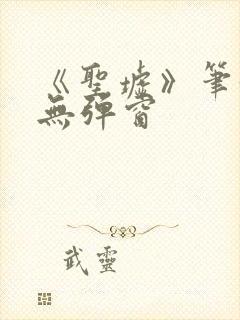 《聖墟》筆
無彈窗
武靈